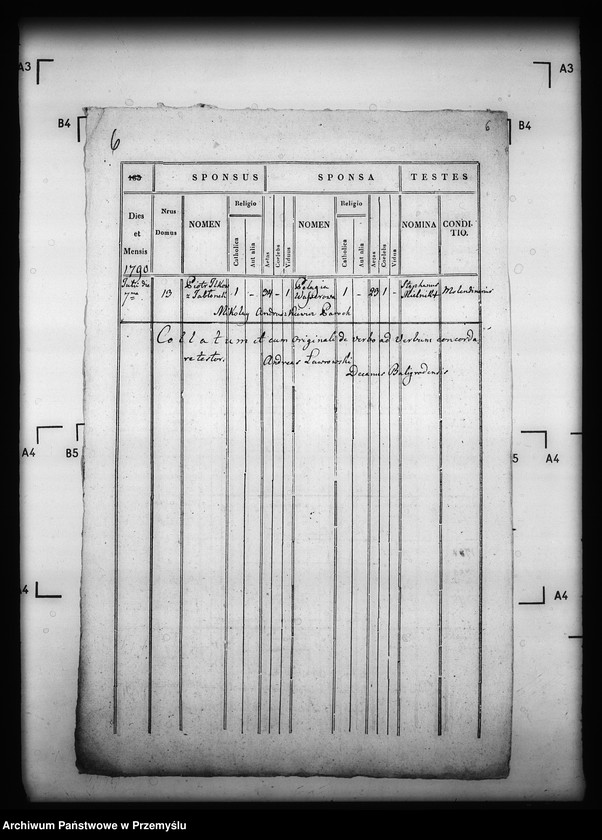 A3
A3
B4
B4
6
6
163
SPONSUS
SPONSA
TESTES
Dies
et
Mensis
1790
Nrus
Domus
NOMEN
Religio
Catholica
Aut alia
Aetas
Coelebs
Viduus
NOMEN
Religio
Catholica
Aut alia
Aetas
Coelebs
Vidua
NOMINA
CONDI-
TIO.
die
7ma
13
Piotr
z Jablonek
1
-
34
-
1
Pelagia
1
-
23
1
-
Stephanus
Mielnik
Molendinarius
Mikolay Paroch
Collatum et cum originali de verbo ad verbum concorda
re testor.
Andreas Ławrowski
Decanus Baligrodensis
A4
B5
A4
A4
A4
Archiwum Państwowe w Przemyślu